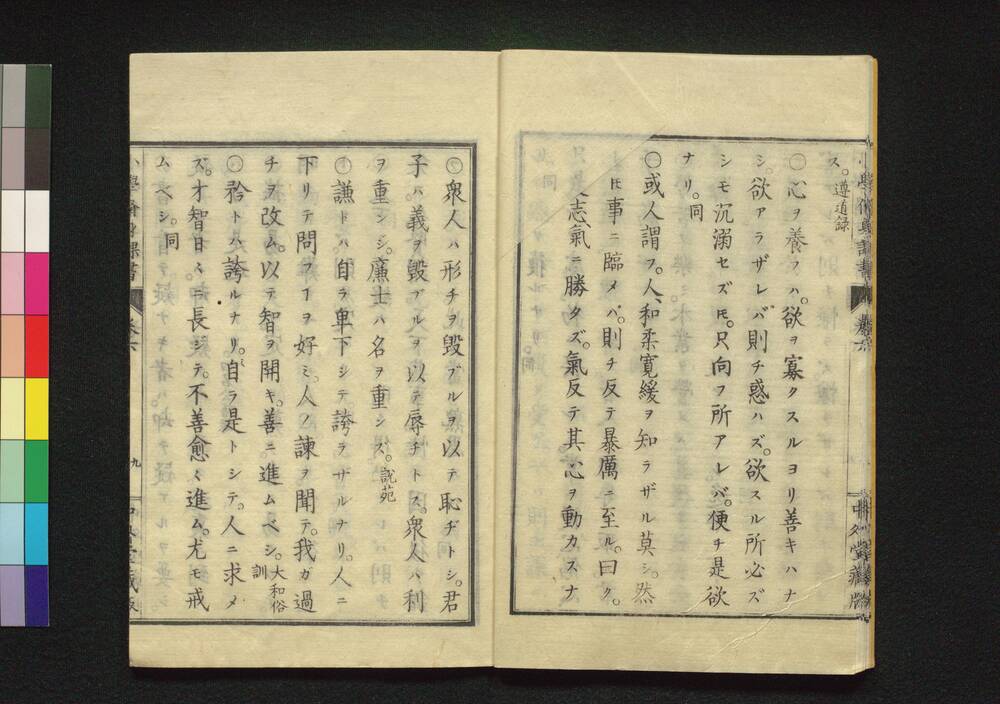 ス。遵道録
〇心ヲ養フハ。欲ヲ寡クスルヨリ善キハナ
シ。欲アラザレバ則チ惑ハズ。欲スル所必ズ
シモ沉溺セズ𪜈。只向フ所アレバ。便チ是欲
ナリ。同
〇或人謂フ。人、和柔寛緩ヲ知ラザル莫シ。然
𪜈事ニ臨メバ。則チ反テ暴厲ニ至ル。曰ク。
志氣ニ勝タズ。氣反テ其心ヲ動カスナ
〇衆人ハ形チヲ毀ブルヲ以テ恥ヂトシ。君
子ハ。義ヲ毀ブルヲ以テ辱チトス。衆人ハ利
ヲ重ンジ。廉士ハ名ヲ重ンズ。説苑
〇謙ドハ自ラ卑下シテ誇ラザルナリ。人ニ
下リテ問フヿヲ好ミ。人ノ諫ヲ聞テ。我ガ過
チヲ改ム。以テ智ヲ開キ。善ニ進ムベシ。大和俗訓
〇矜トハ誇ルナリ。自ラ是トシテ。人ニ求メ
ズ。才智日〻ニ長ジテ。不善愈〻進ム。尤モ戒
ムベシ。同
九